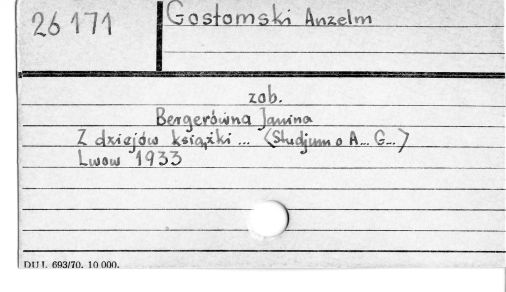 26 171
Gostomski Anzelm
zob.
Bergerówna Janina
Z dziejów książki ... <Studjum o A... G...>
Lwów 1933
DUJ. 693/70. 10 000.